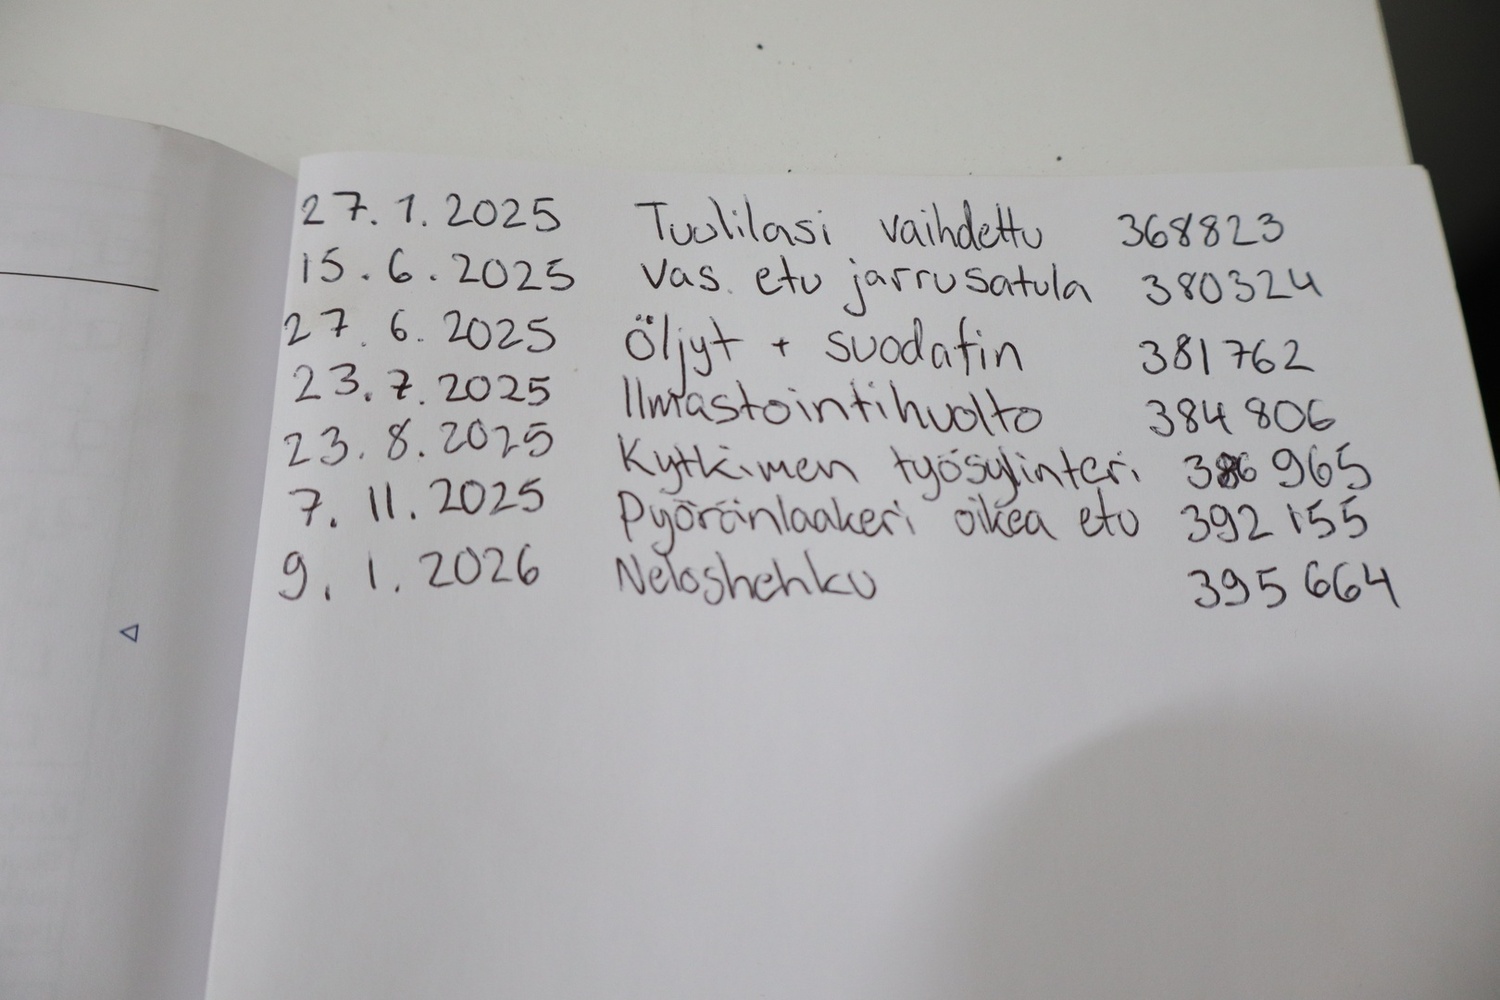 27.1.2025 Tuulilasi vaihdettu 368823
15.6.2025 Vas. etu jarrusatula 380324
27.6.2025 Öljyt + suodatin 381762
23.7.2025 Ilmastointihuolto 384 806
23.8.2025 Kytkimen työsylinteri 386 965
7.11.2025 Pyöränlaakeri oikea etu 392 155
9.1.2026 Neloshehku 395 664